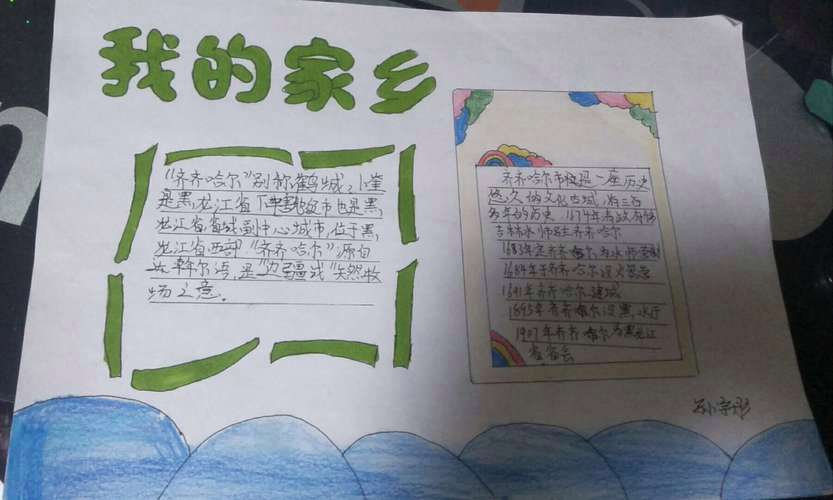 我的家乡
"齐齐哈尔"别称鹤城,
是黑龙江省下辖地级市也是黑
龙江省省域副中心城市,位于黑
龙江省西部"齐齐哈尔"源自
达斡尔语,是"边疆或"天然牧
场之意。
齐齐哈尔市是一座历史
悠久的文化古城,有三百
多年的历史 1674年
吉林水师 齐齐哈尔
1683年定齐齐哈尔为水师营
1684年于齐齐哈尔设火器营
1691年齐齐哈尔建城
1895年齐齐哈尔设黑水厅
1907年齐齐哈尔为黑龙江
省省会
孙宇彤